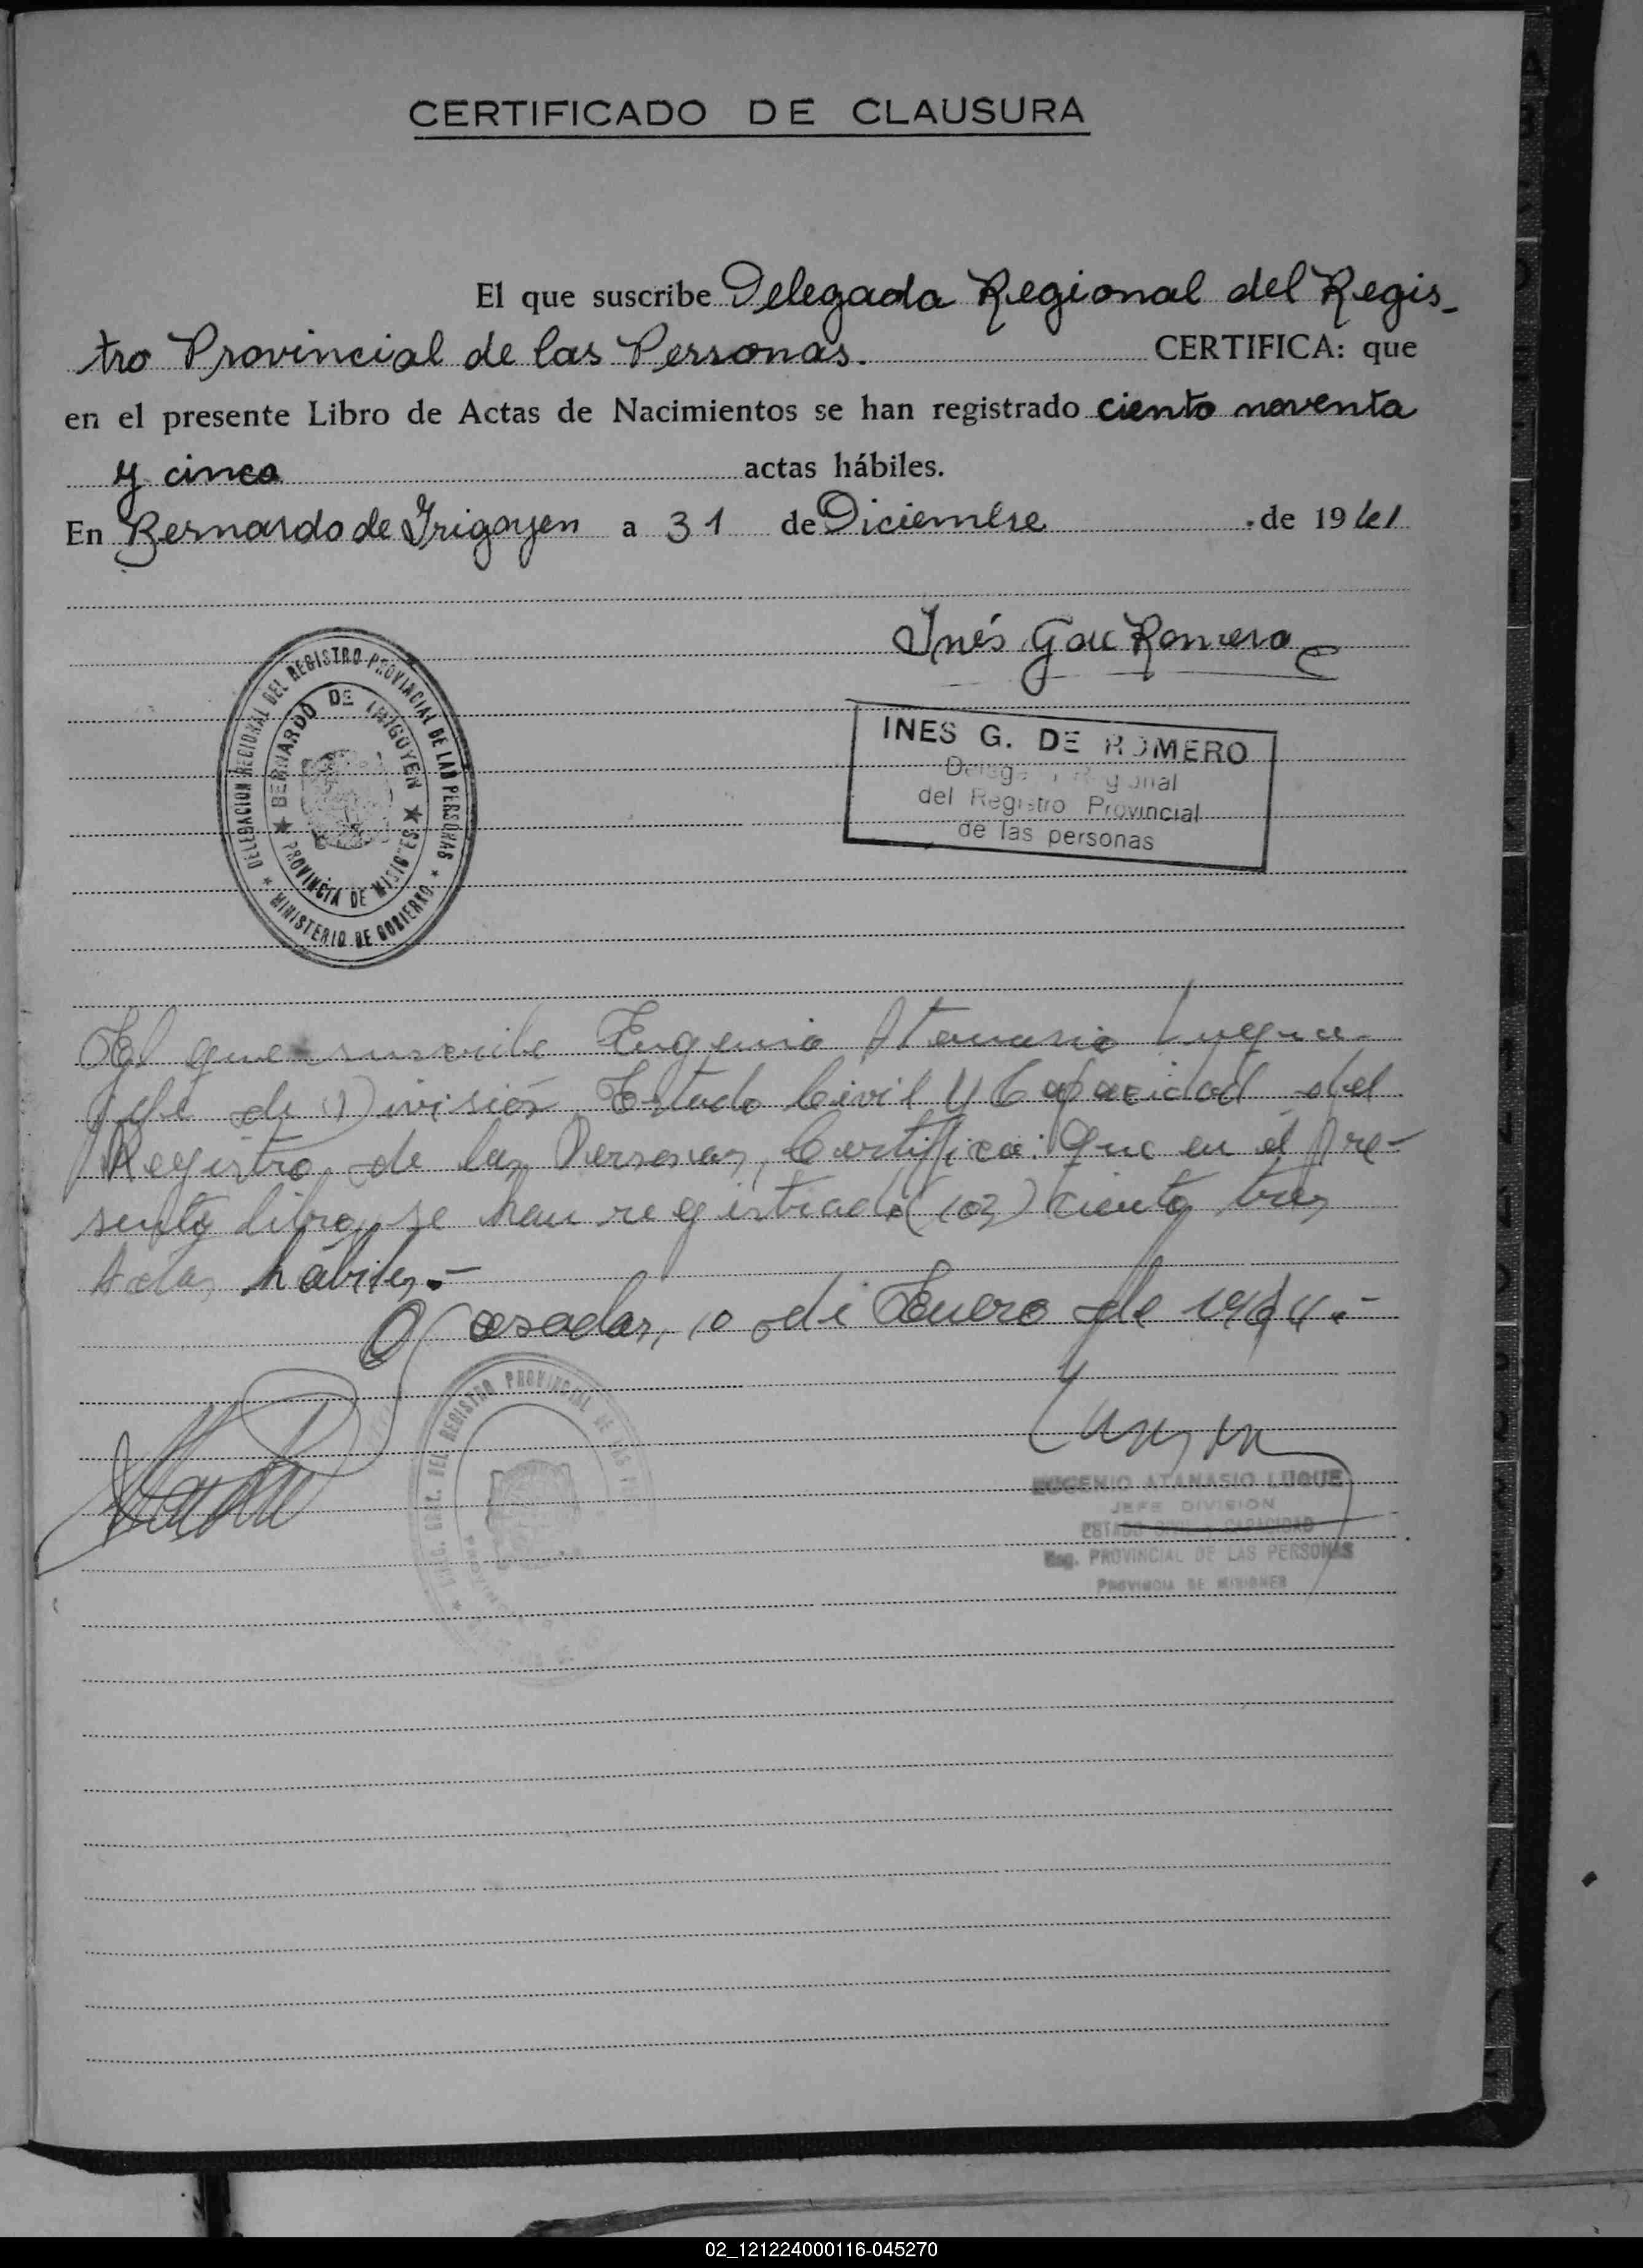 CERTIFICADO DE CLAUSURA
El que suscribe Delegada Regional del Regis-
tro Provincial de las Personas. CERTIFICA: que
en el presente Libro de Actas de Nacimientos se han registrado ciento noventa
y cinco actas hábiles.
En Bernardo de Irigoyen a 31 de Diciembre de 1961
Inés G de Romero
DELEGACION REGIONAL DEL REGISTRO PROVINCIAL DE LAS PERSONAS
BERNARDO DE IRIGOYEN
PROVINCIA DE MISIONES
MINISTERIO DE GOBIERNO
INES G. DE ROMERO
Delegada Regional
del Registro Provincial
de las personas
El que suscribe Eugenio Atanasio Luque
Jefe de División Estado Civil y Capacidad del
Registro de las Personas, Certifica: Que en el pre-
sente libro, se han registrado (103) ciento tres
Actas hábiles.-
Posadas, 10 de Enero de 1964.-
REGISTRO PROVINCIAL DE LAS
EUGENIO ATANASIO LUQUE
JEFE DIVISION
ESTADO CIVIL Y CAPACIDAD
Reg. PROVINCIAL DE LAS PERSONAS
PROVINCIA DE MISIONES
02_121224000116-045270